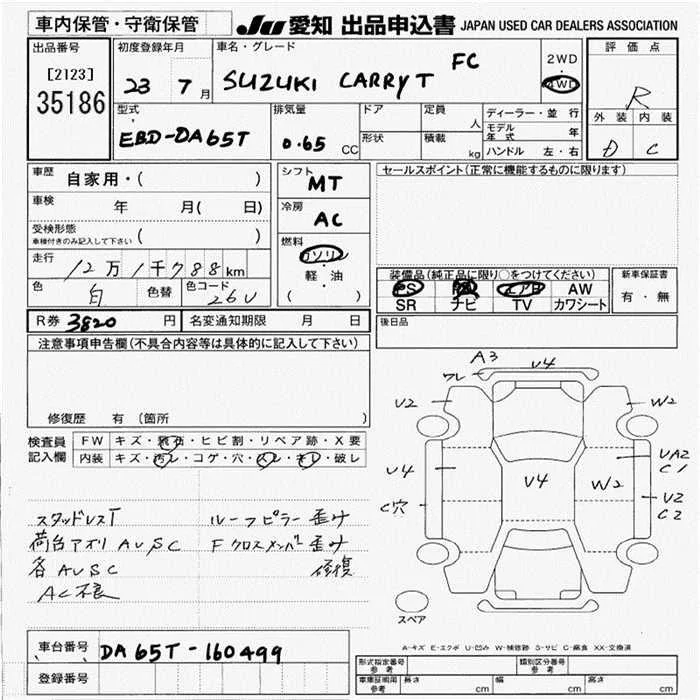 車内保管・守衛保管 JU 愛知 出品申込書 JAPAN USED CAR DEALERS ASSOCIATION
出品番号 初度登録年月 車名・グレード 2WD 評価点
[2123] 23 7月 SUZUKI CARRY T FC ・ R
35186 4WD 外装 内装
型式 排気量 ドア 定員 ディーラー・並行 D C
EBD-DA65T 0.65 CC 人 モデル年式 年
形状 積載 kg ハンドル 左・右
車歴 自家用・( ) シフト MT セールスポイント(正常に機能するものに限ります)
車検 年 月( 日) 冷房 AC
受検形態 ( )
車検付きのみ記入して下さい
走行 12万1千788km 燃料 ガソリン
軽・油
( )
色 白 色替 色コード 26U
装備品(純正品に限り○をつけてください) 新車保証書
PS エアB AW 有・無
SR ナビ TV カワシート
R券 3820 円 名変通知期限 月 日 後日品
注意事項申告欄(不具合内容等は具体的に記入して下さい)
修復歴 有 (箇所
検査員 FW キズ・飛石・ヒビ割・リペア跡・X要
記入欄 内装 キズ・汚レ・コゲ・穴・スレ・キレ・破レ
A3 U4
ワレ
U2 W2
U4 U4 W2 UA2
C1
C穴 U2
C2
スペア
スタッドレスT ルーフピラー歪み
荷台アオリAUSC Fクロスメンバー歪み
各AUSC 修復
AC不良
車台番号 DA65T-160499
登録番号
A-キズ E-エクボ U-凹み W-補修跡 S-サビ C-腐食 XX-交換済
形式指定番号 参考 類別区分番号 参考
車庫証明用 参考 長さ cm 幅 cm 高さ cm